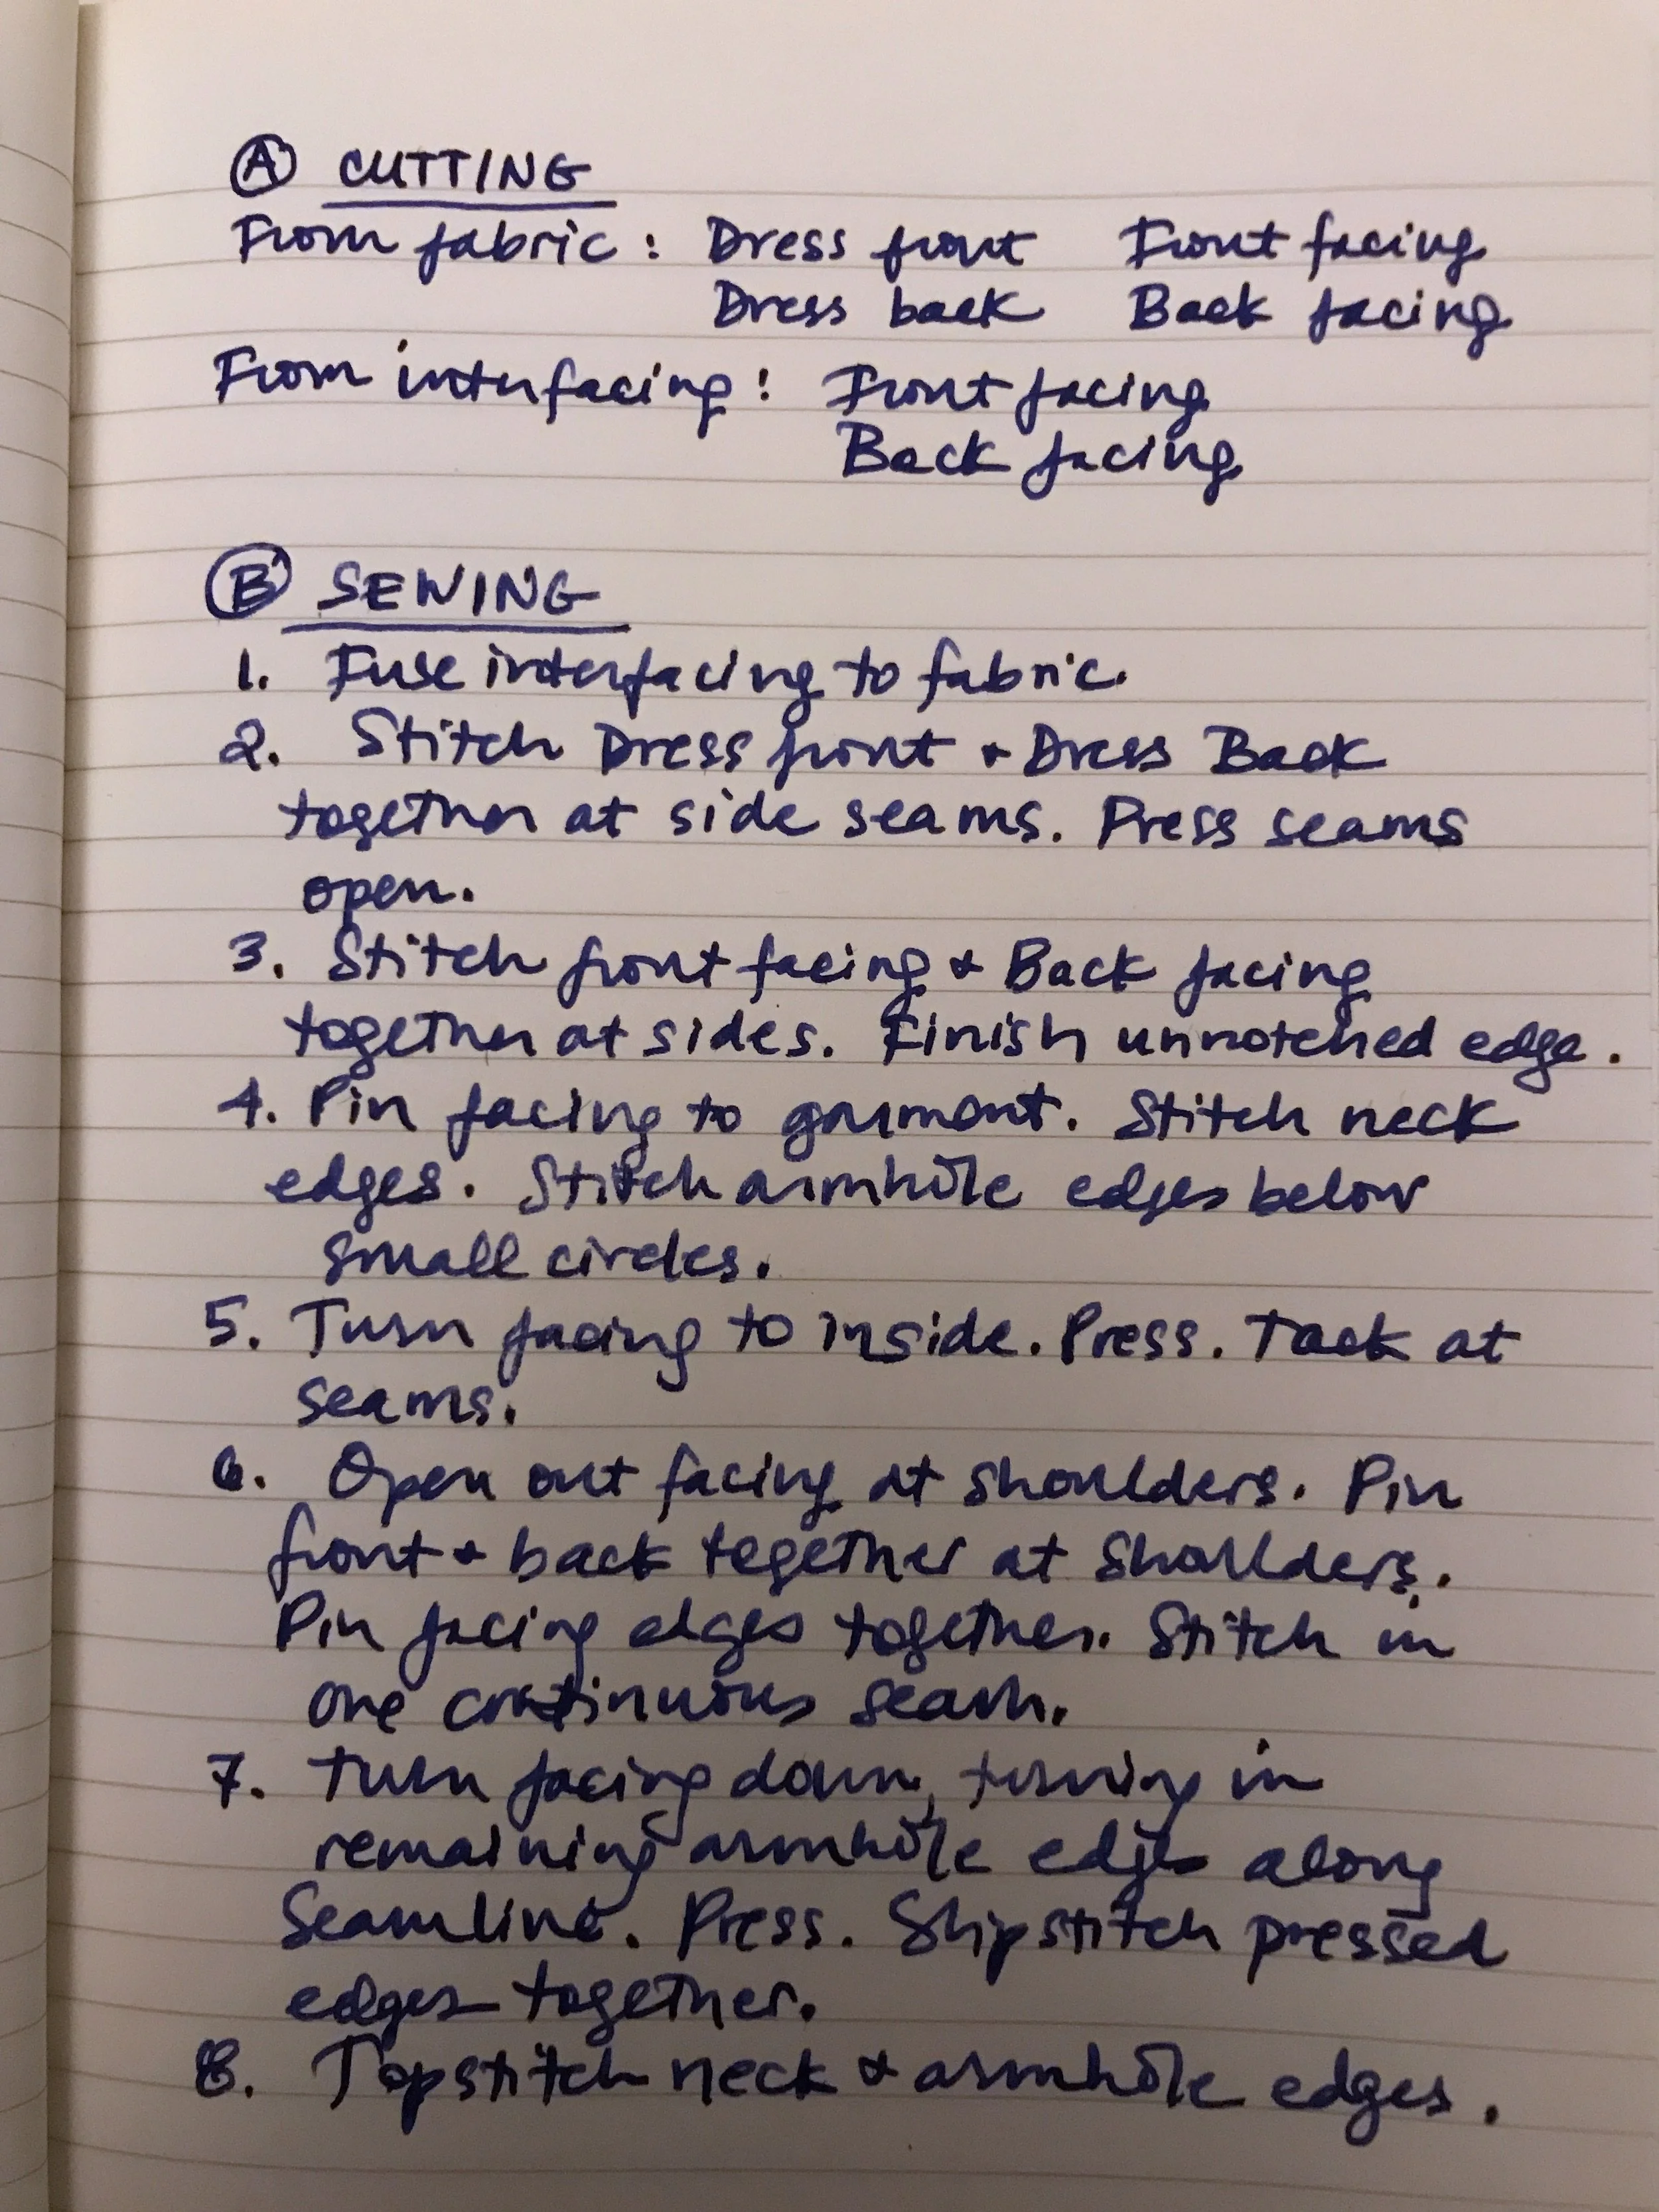 Ⓐ CUTTING
From fabric: Dress front Front facing
Dress back Back facing
From interfacing: Front facing
Back facing
Ⓑ SEWING
1. Fuse interfacing to fabric.
2. Stitch Dress front + Dress Back
together at side seams. Press seams
open.
3. Stitch front facing + Back facing
together at sides. Finish unnotched edge.
4. Pin facing to garment. Stitch neck
edges. Stitch armhole edges below
small circles.
5. Turn facing to inside. Press. Tack at
seams.
6. Open out facing at shoulders. Pin
front + back together at shoulders.
Pin facing edges together. Stitch in
one continuous seam.
7. Turn facing down, turning in
remaining armhole edges along
seamline. Press. Slipstitch pressed
edges together.
8. Topstitch neck + armhole edges.